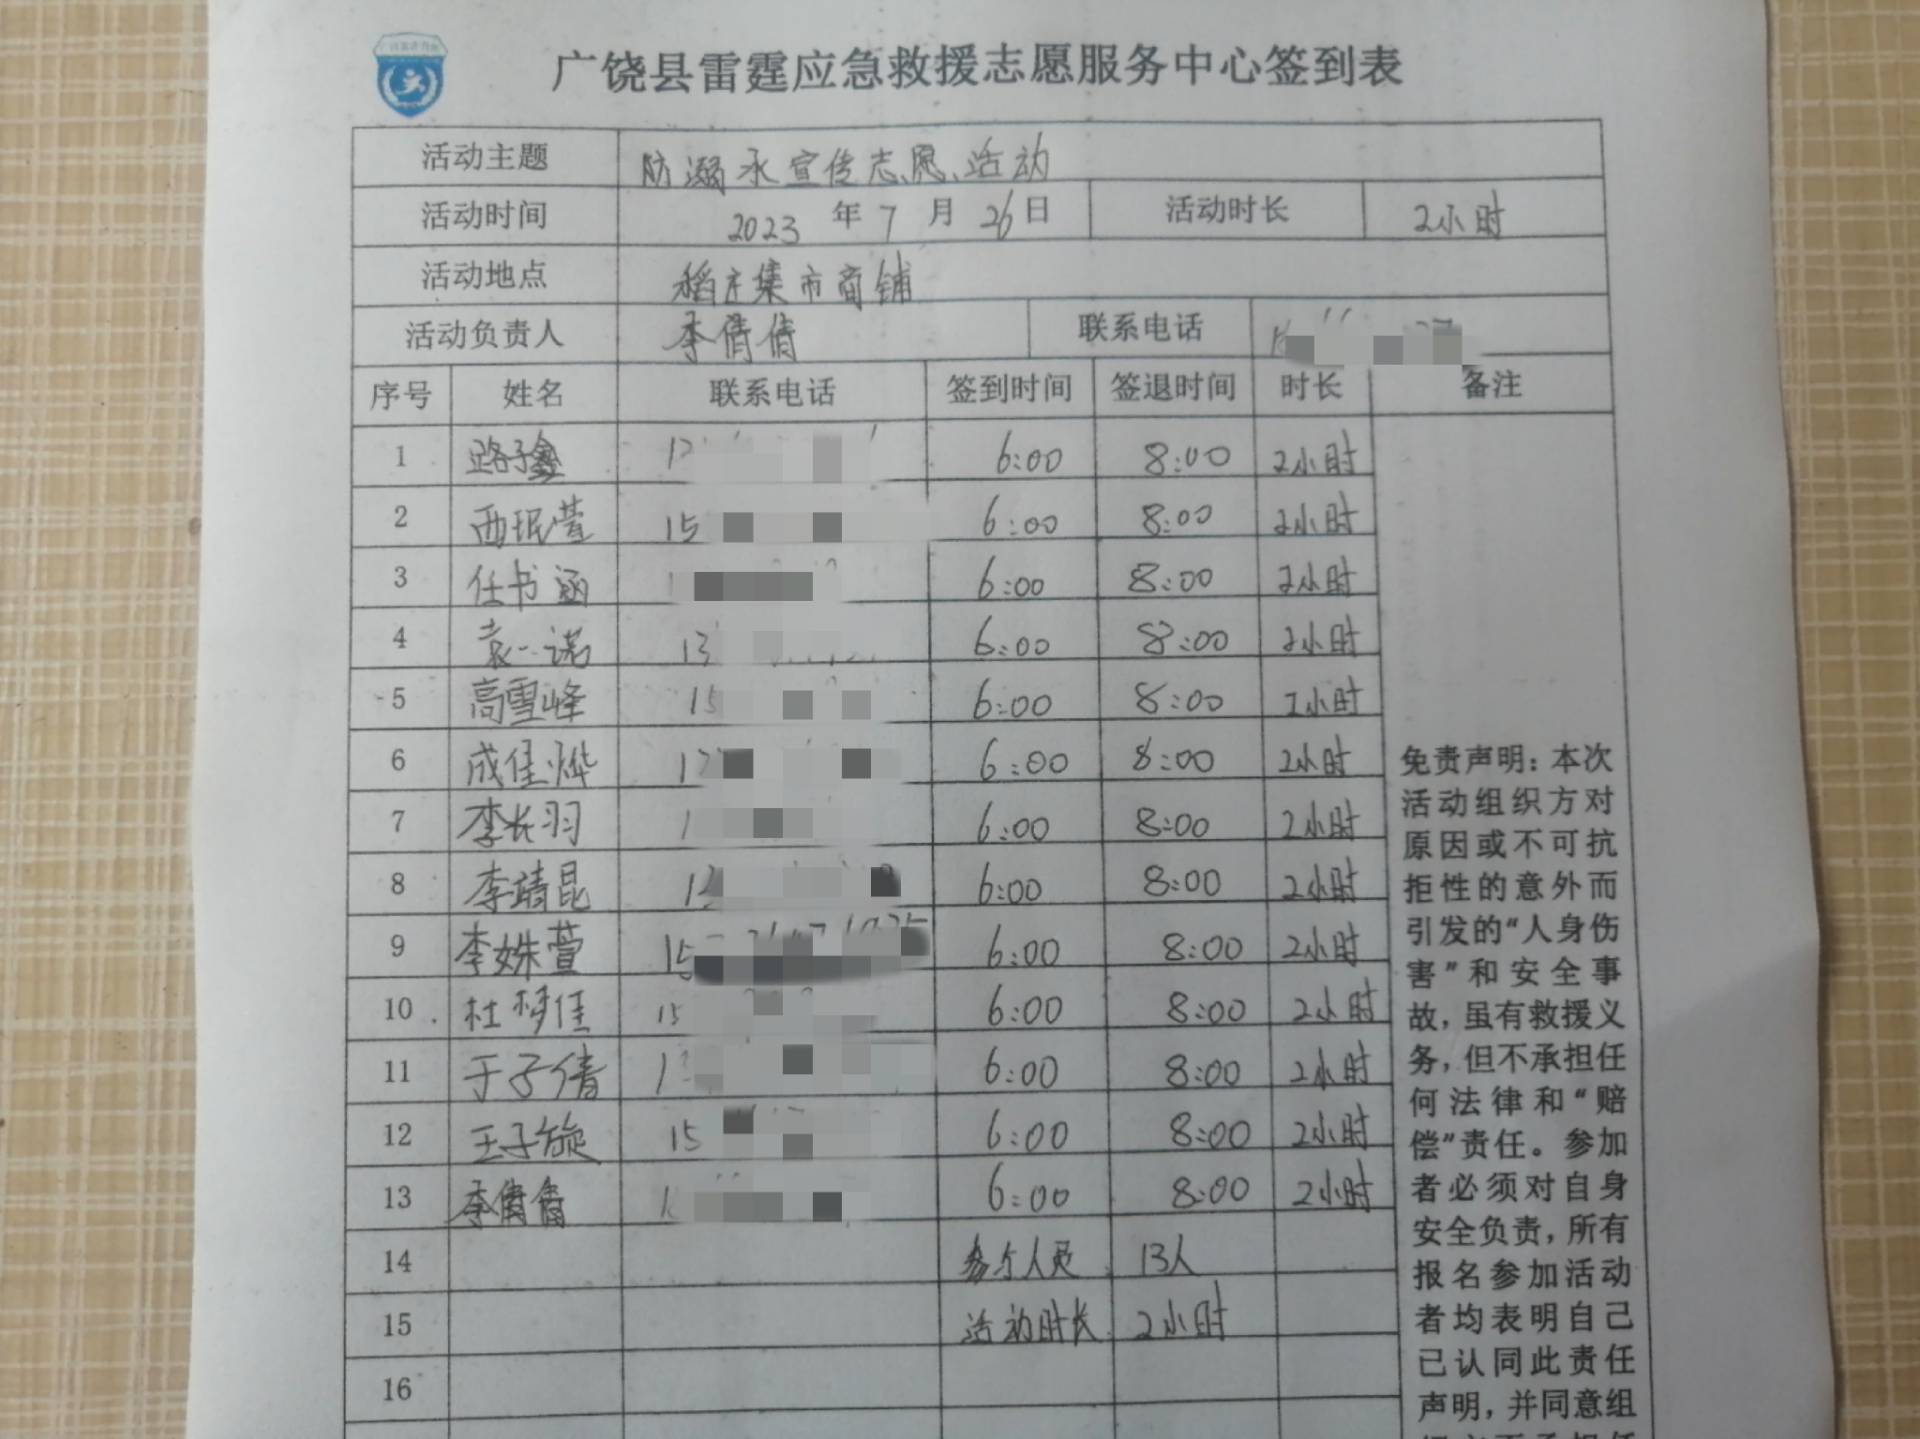 广饶县雷霆应急救援志愿服务中心签到表
活动主题 防溺水宣传志愿活动
活动时间 2023 年 7 月 26 日 活动时长 2小时
活动地点 稻庄集市商铺
活动负责人 李倩倩 联系电话
序号 姓名 联系电话 签到时间 签退时间 时长 备注
1 路子鑫 6:00 8:00 2小时
2 西珉萱 15 6:00 8:00 2小时
3 任书涵 6:00 8:00 2小时
4 袁一诺 13 6:00 8:00 2小时
5 高雪峰 15 6:00 8:00 2小时
6 成佳烨 6:00 8:00 2小时
7 李长羽 6:00 8:00 2小时
8 李靖昆 6:00 8:00 2小时
9 李姝萱 15 6:00 8:00 2小时
10 杜梦佳 15 6:00 8:00 2小时
11 于子倩 6:00 8:00 2小时
12 王子旋 15 6:00 8:00 2小时
13 李倩倩 6:00 8:00 2小时
14 参与人员 13人
15 活动时长 2小时
16
免责声明：本次
活动组织方对
原因或不可抗
拒性的意外而
引发的“人身伤
害”和安全事
故，虽有救援义
务，但不承担任
何法律和“赔
偿”责任。参加
者必须对自身
安全负责，所有
报名参加活动
者均表明自己
已认同此责任
声明，并同意组